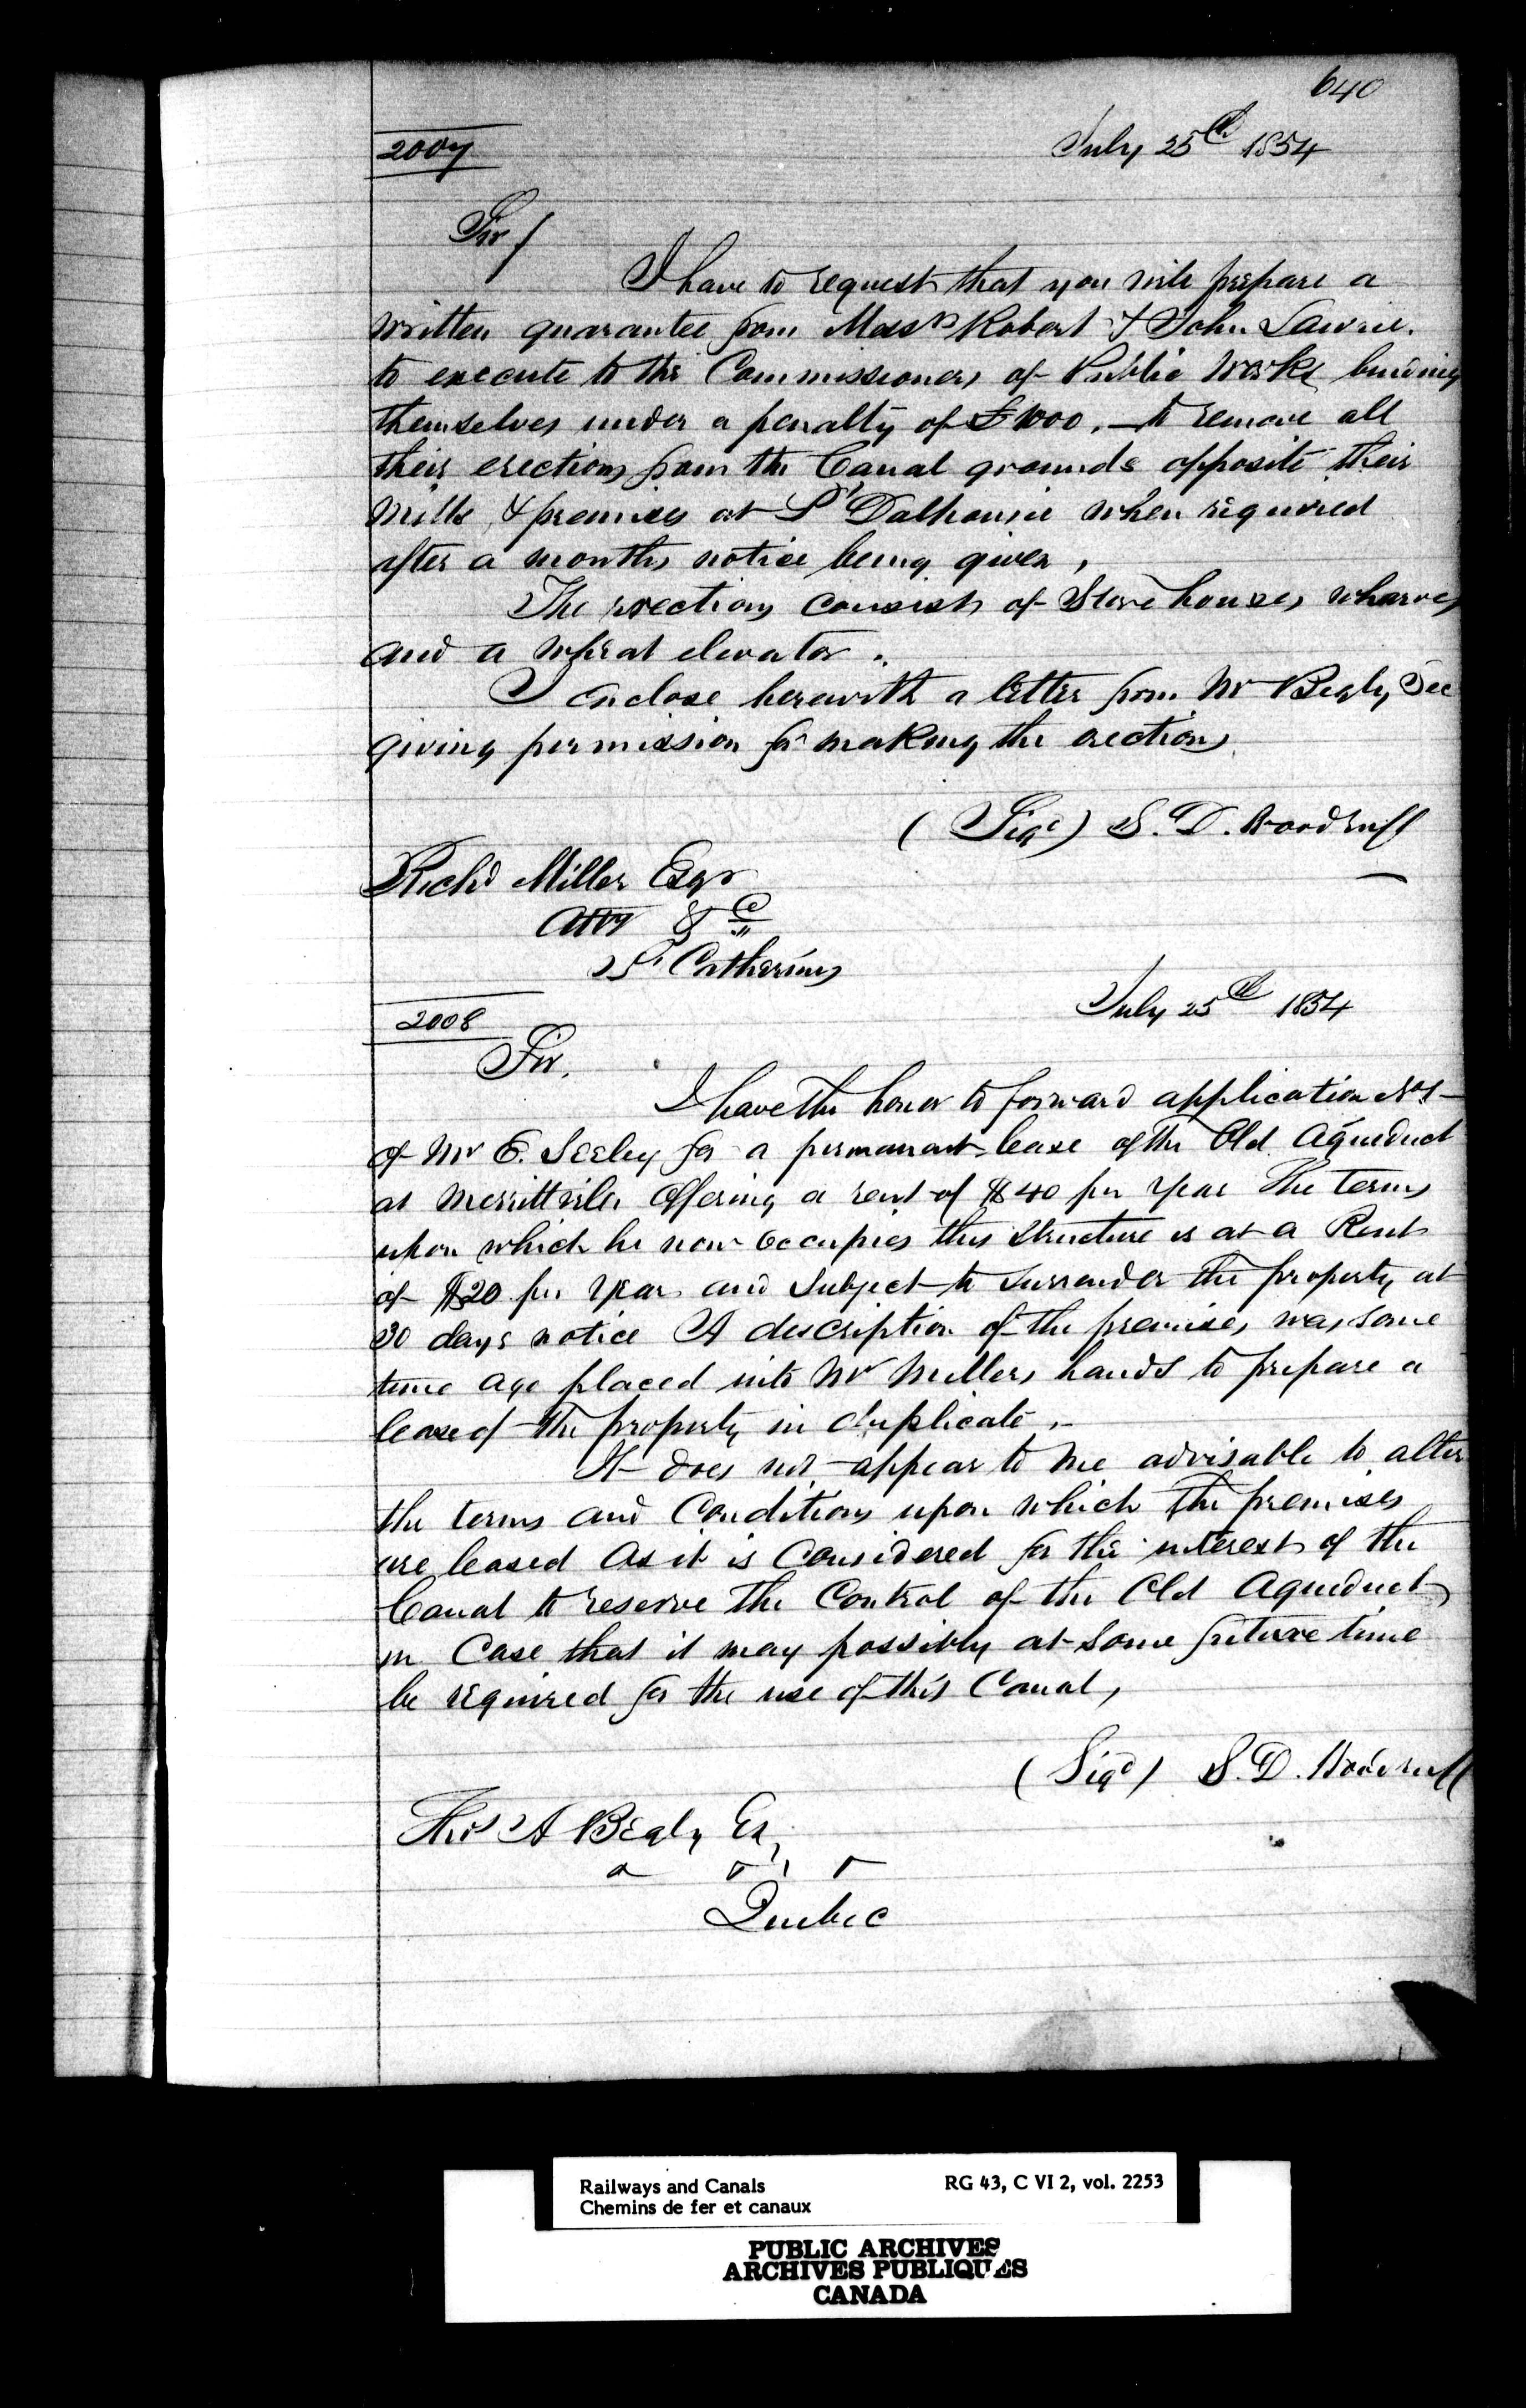 640
2007
July 25th 1854
Sir/
I have to request that you will prepare a
written guarantee from Messrs Robert & John Lawrie.
to execute to the Commissioners of Public Works binding
themselves under a penalty of £1000. — to remove all
their erections from the Canal grounds opposite their
Mills & premises at Pt Dalhousie when required
after a months notice being given,
The erections consist of Store houses, wharves
and a wheat elevator.
I enclose herewith a letter from Mr Begly Sec
giving permission for making the erections
(Sigd) S. D. Woodruff
Richd Miller Esqr
Atty &c
St Catherines
2008
July 25th 1854
Sir.
I have the honor to forward application No 1 —
of Mr E. Seeley for a permanent lease of the Old Aqueduct
at Merrittville Offering a rent of $40 per year The terms
upon which he now occupies this structure is at a Rent
of $20 per year and subject to surrender the property at
30 days notice A description of the premises was some
time ago placed into Mr Millers hands to prepare a
lease of the property in duplicate.
It does not appear to me advisable to alter
the terms and Conditions upon which the premises
are leased As it is Considered for the interest of the
Canal to reserve the Control of the Old Aqueduct
in Case that it may possibly at some future time
be required for the use of this Canal,
(Sigd) S. D. Woodruff
Thos A Begly Es,
Quebec
Railways and Canals
Chemins de fer et canaux
RG 43, C VI 2, vol. 2253
PUBLIC ARCHIVES
ARCHIVES PUBLIQUES
CANADA